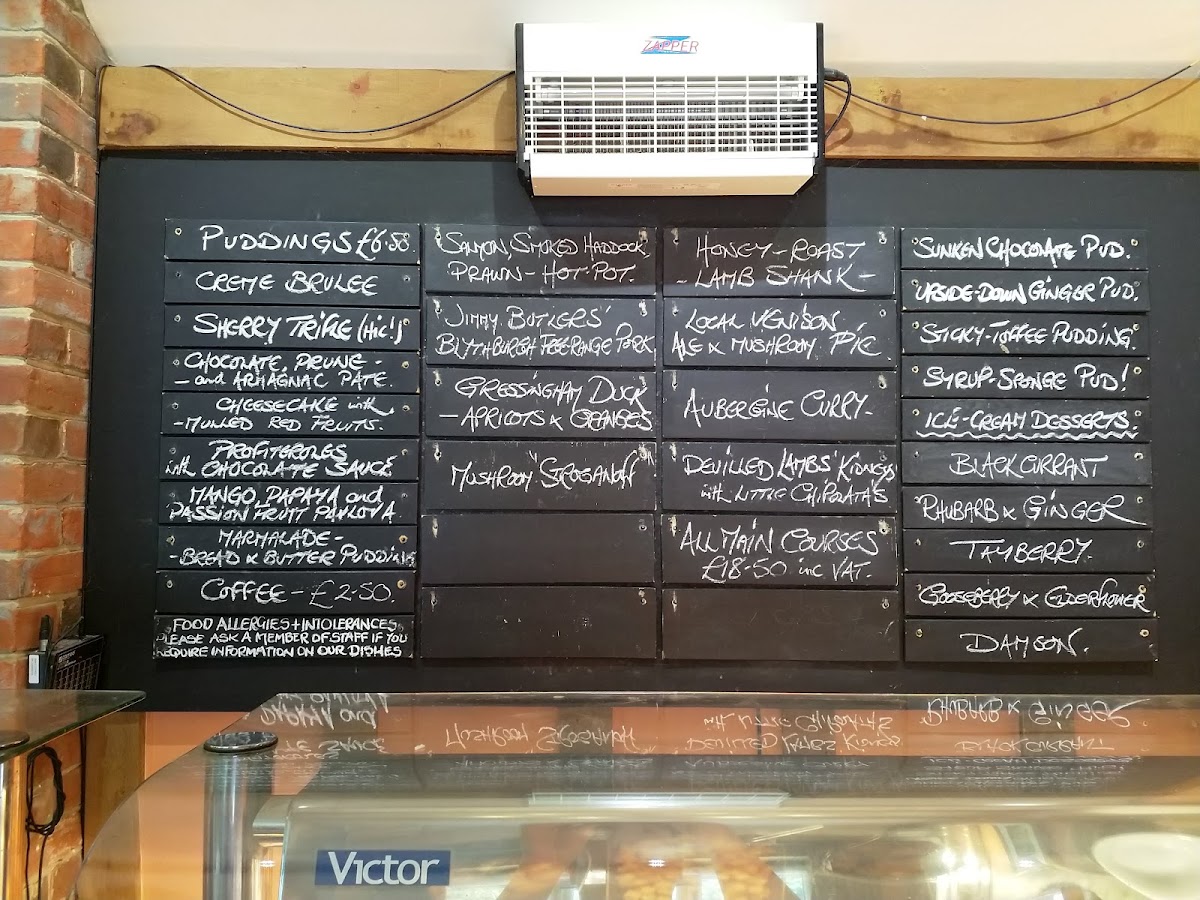 ZAPPER
PUDDINGS £6.50
CREME BRULEE
SHERRY TRIFLE (Hic!)
CHOCOLATE, PRUNE -
- and ARMAGNAC PATE.
CHEESECAKE with
- MULLED RED FRUITS.
PROFITEROLES
with CHOCOLATE SAUCE
MANGO, PAPAYA and
PASSION FRUIT PAVLOVA
MARMALADE -
- BREAD & BUTTER PUDDING
COFFEE - £2.50
FOOD ALLERGIES + INTOLERANCES
PLEASE ASK A MEMBER OF STAFF IF YOU
REQUIRE INFORMATION ON OUR DISHES
SALMON, SMOKED HADDOCK,
PRAWN - HOT-POT.
JIMMY BUTLERS'
BLYTHBURGH FREE-RANGE PORK
GRESSINGHAM DUCK
- APRICOTS & ORANGES
MUSHROOM STROGANOFF
HONEY - ROAST
- LAMB SHANK -
LOCAL VENISON
ALE & MUSHROOM PIE
AUBERGINE CURRY -
DEVILLED LAMBS' KIDNEYS
with LITTLE CHIPOLATA'S
ALL MAIN COURSES
£18-50 inc VAT.
SUNKEN CHOCOLATE PUD.
UPSIDE-DOWN GINGER PUD.
STICKY-TOFFEE PUDDING.
SYRUP-SPONGE PUD!
ICE-CREAM DESSERTS.
BLACKCURRANT
RHUBARB & GINGER
TAYBERRY.
GOOSEBERRY & ELDERFLOWER
DAMSON.
Victor